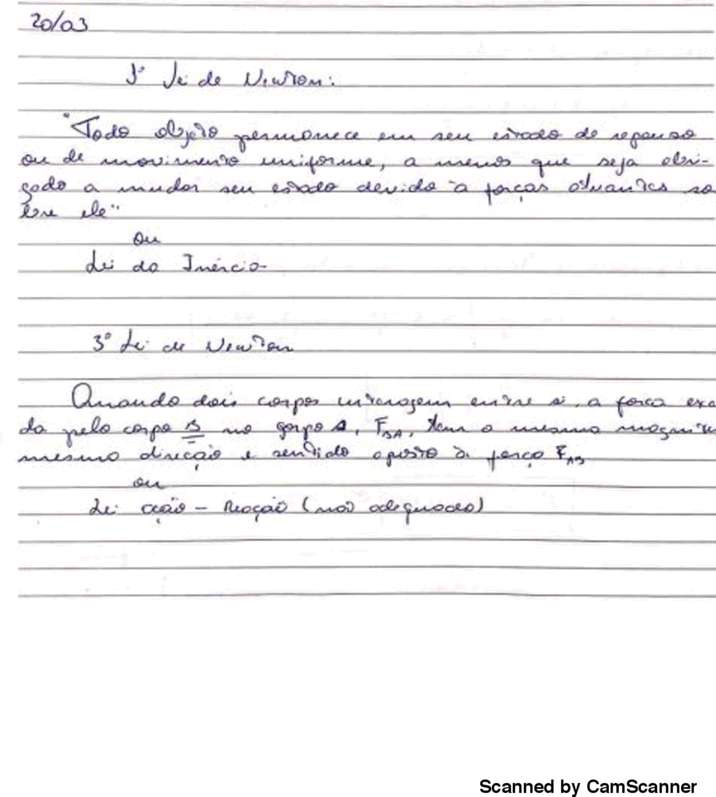 20/03
1ª Lei de Newton:
"Todo objeto permanece em seu estado de repouso
ou de movimento uniforme, a menos que seja obri-
gado a mudar seu estado devido à forças atuantes so
bre ele"
ou
Lei da Inércia
3ª Lei de Newton
Quando dois corpos interagem entre si, a força exer
da pelo corpo B no corpo A, FBA, tem a mesma magnitu
mesma direção e sentido oposto à força FAB
ou
Lei ação - Reação (não adequado)
Scanned by CamScanner